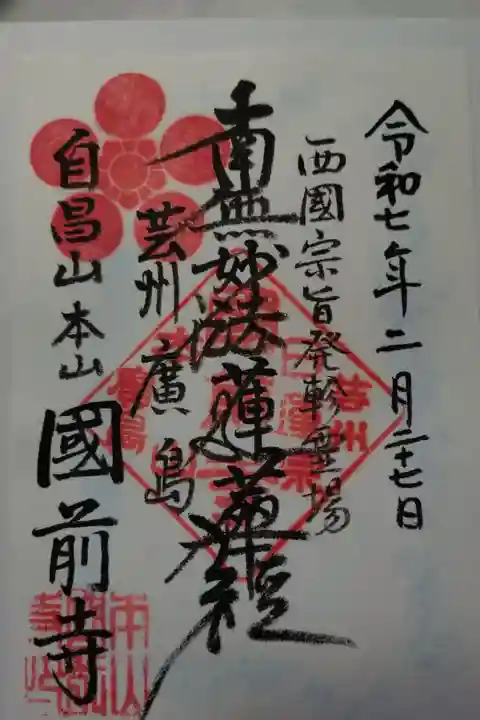 令和七年二月二十七日
西國宗旨発軫霊場
南無妙法蓮華経
芸州廣島
自昌山本山國前寺